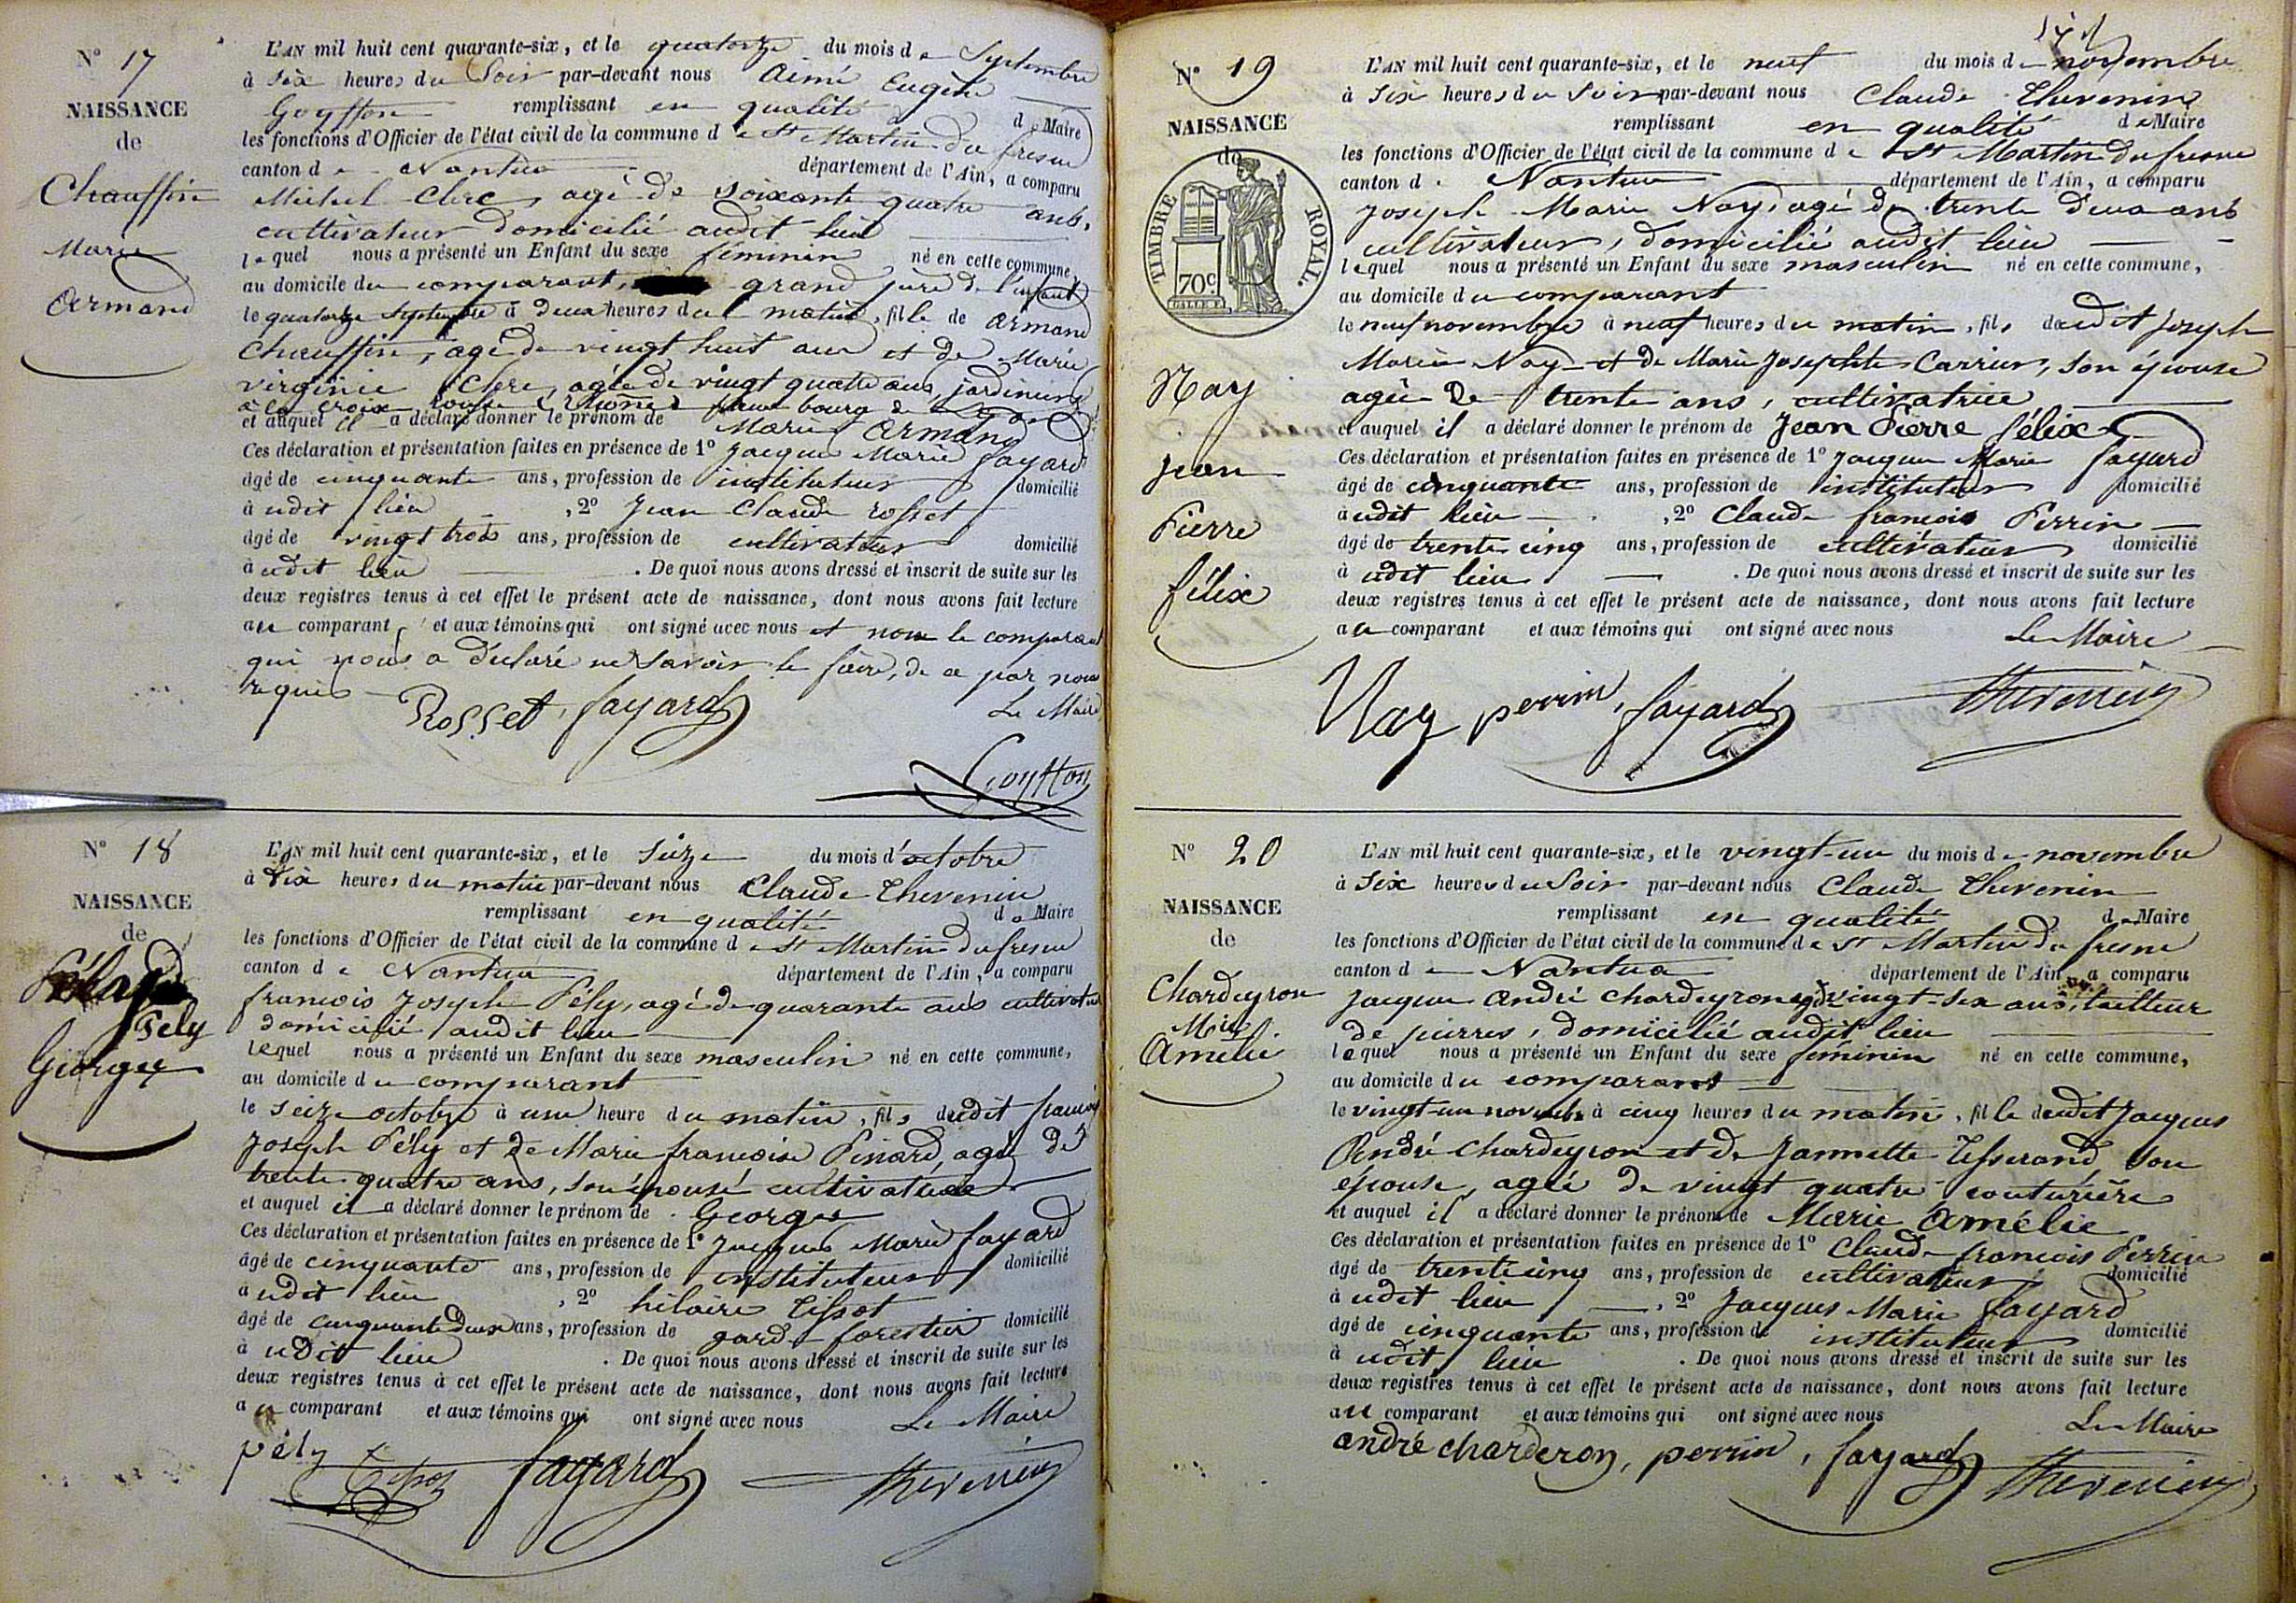 N° 17
NAISSANCE
de
Chauffin
Marie
Armand
L'AN mil huit cent quarante-six, et le quatorze du mois de Septembre
à six heures du Soir par-devant nous Aimé Eugène
Goyffon remplissant en qualité de Maire
les fonctions d'Officier de l'état civil de la commune de St Martin du fresne
canton de Nantua département de l'Ain, a comparu
Michel Clerc, agé de soixante quatre ans,
cultivateur domicilié audit lieu
lequel nous a présenté un Enfant du sexe féminin né en cette commune,
au domicile du comparant, grand père de l'enfant
le quatorze septembre à deux heures du matin, fille de Armand
Chauffin, agé de vingt huit ans et de Marie
virginie Clerc, agée de vingt quatre ans, jardiniers
à la croix-rousse (Rhône) faubourg de Lyon
et auquel il a déclaré donner le prénom de Marie Armand
Ces déclaration et présentation faites en présence de 1° Jacques Marie fayard
âgé de cinquante ans, profession de instituteur domicilié
audit lieu , 2° Jean Claude rosset
âgé de vingt trois ans, profession de cultivateur domicilié
audit lieu . De quoi nous avons dressé et inscrit de suite sur les
deux registres tenus à cet effet le présent acte de naissance, dont nous avons fait lecture
au comparant et aux témoins qui ont signé avec nous et non le comparant
qui nous a déclaré ne savoir le faire, de ce par nous
requis
Le Maire
Rosset, fayard
Goyffon
N° 18
NAISSANCE
de
Pély
Georges
L'AN mil huit cent quarante-six, et le seize du mois d'octobre
à dix heures du matin par-devant nous Claude Thevenin
remplissant en qualité de Maire
les fonctions d'Officier de l'état civil de la commune de St Martin du fresne
canton de Nantua département de l'Ain, a comparu
françois Joseph Pély, agé de quarante ans cultivateur
domicilié audit lieu
lequel nous a présenté un Enfant du sexe masculin né en cette commune,
au domicile du comparant
le seize octobre à une heure du matin, fils dudit françois
Joseph Pély et de Marie françoise Pinard, agée de
trente quatre ans, son épouse cultivatrice
et auquel il a déclaré donner le prénom de Georges
Ces déclaration et présentation faites en présence de 1° Jacques Marie fayard
âgé de cinquante ans, profession de instituteur domicilié
audit lieu , 2° hilaire Tissot
âgé de cinquante deux ans, profession de garde forestier domicilié
audit lieu . De quoi nous avons dressé et inscrit de suite sur les
deux registres tenus à cet effet le présent acte de naissance, dont nous avons fait lecture
au comparant et aux témoins qui ont signé avec nous Le Maire
pély fayard Thevenin
N° 19
NAISSANCE
de
TIMBRE ROYAL.
70c
Nay
Jean
Pierre
félix
L'AN mil huit cent quarante-six, et le neuf du mois de novembre
à six heures du Soir par-devant nous Claude Thevenin
remplissant en qualité de Maire
les fonctions d'Officier de l'état civil de la commune de St Martin du fresne
canton de Nantua département de l'Ain, a comparu
Joseph Marie Nay, agé de trente deux ans
cultivateur, domicilié audit lieu
lequel nous a présenté un Enfant du sexe masculin né en cette commune,
au domicile du comparant
le neuf novembre à neuf heures du matin, fils dudit Joseph
Marie Nay et de Marie Josephte Carrier, son épouse
agée de trente ans, cultivatrice
et auquel il a déclaré donner le prénom de Jean Pierre félix
Ces déclaration et présentation faites en présence de 1° Jacques Marie fayard
âgé de cinquante ans, profession de instituteur domicilié
audit lieu , 2° Claude françois Perrin
âgé de trente cinq ans, profession de cultivateur domicilié
à udit lieu . De quoi nous avons dressé et inscrit de suite sur les
deux registres tenus à cet effet le présent acte de naissance, dont nous avons fait lecture
au comparant et aux témoins qui ont signé avec nous Le Maire
Nay perrin, fayard Thevenin
N° 20
NAISSANCE
de
Chardeyron
Mie
Amélie
L'AN mil huit cent quarante-six, et le vingt-un du mois de novembre
à six heures du Soir par-devant nous Claude Thevenin
remplissant en qualité de Maire
les fonctions d'Officier de l'état civil de la commune de St Martin du fresne
canton de Nantua département de l'Ain, a comparu
Jacques André chardeyron agé de vingt-six ans, tailleur
de pierres, domicilié audit lieu
lequel nous a présenté un Enfant du sexe féminin né en cette commune,
au domicile du comparant
le vingt-un novembre à cinq heures du matin, fille dudit Jacques
André Chardeyron et de Jannette Tesserand, son
épouse, agée de vingt quatre couturière
et auquel il a déclaré donner le prénom de Marie Amélie
Ces déclaration et présentation faites en présence de 1° Claude françois Perrin
âgé de trente cinq ans, profession de cultivateur domicilié
à udit lieu , 2° Jacques Marie fayard
âgé de cinquante ans, profession de instituteur domicilié
à udit lieu . De quoi nous avons dressé et inscrit de suite sur les
deux registres tenus à cet effet le présent acte de naissance, dont nous avons fait lecture
au comparant et aux témoins qui ont signé avec nous Le Maire
andré charderon, perrin, fayard Thevenin